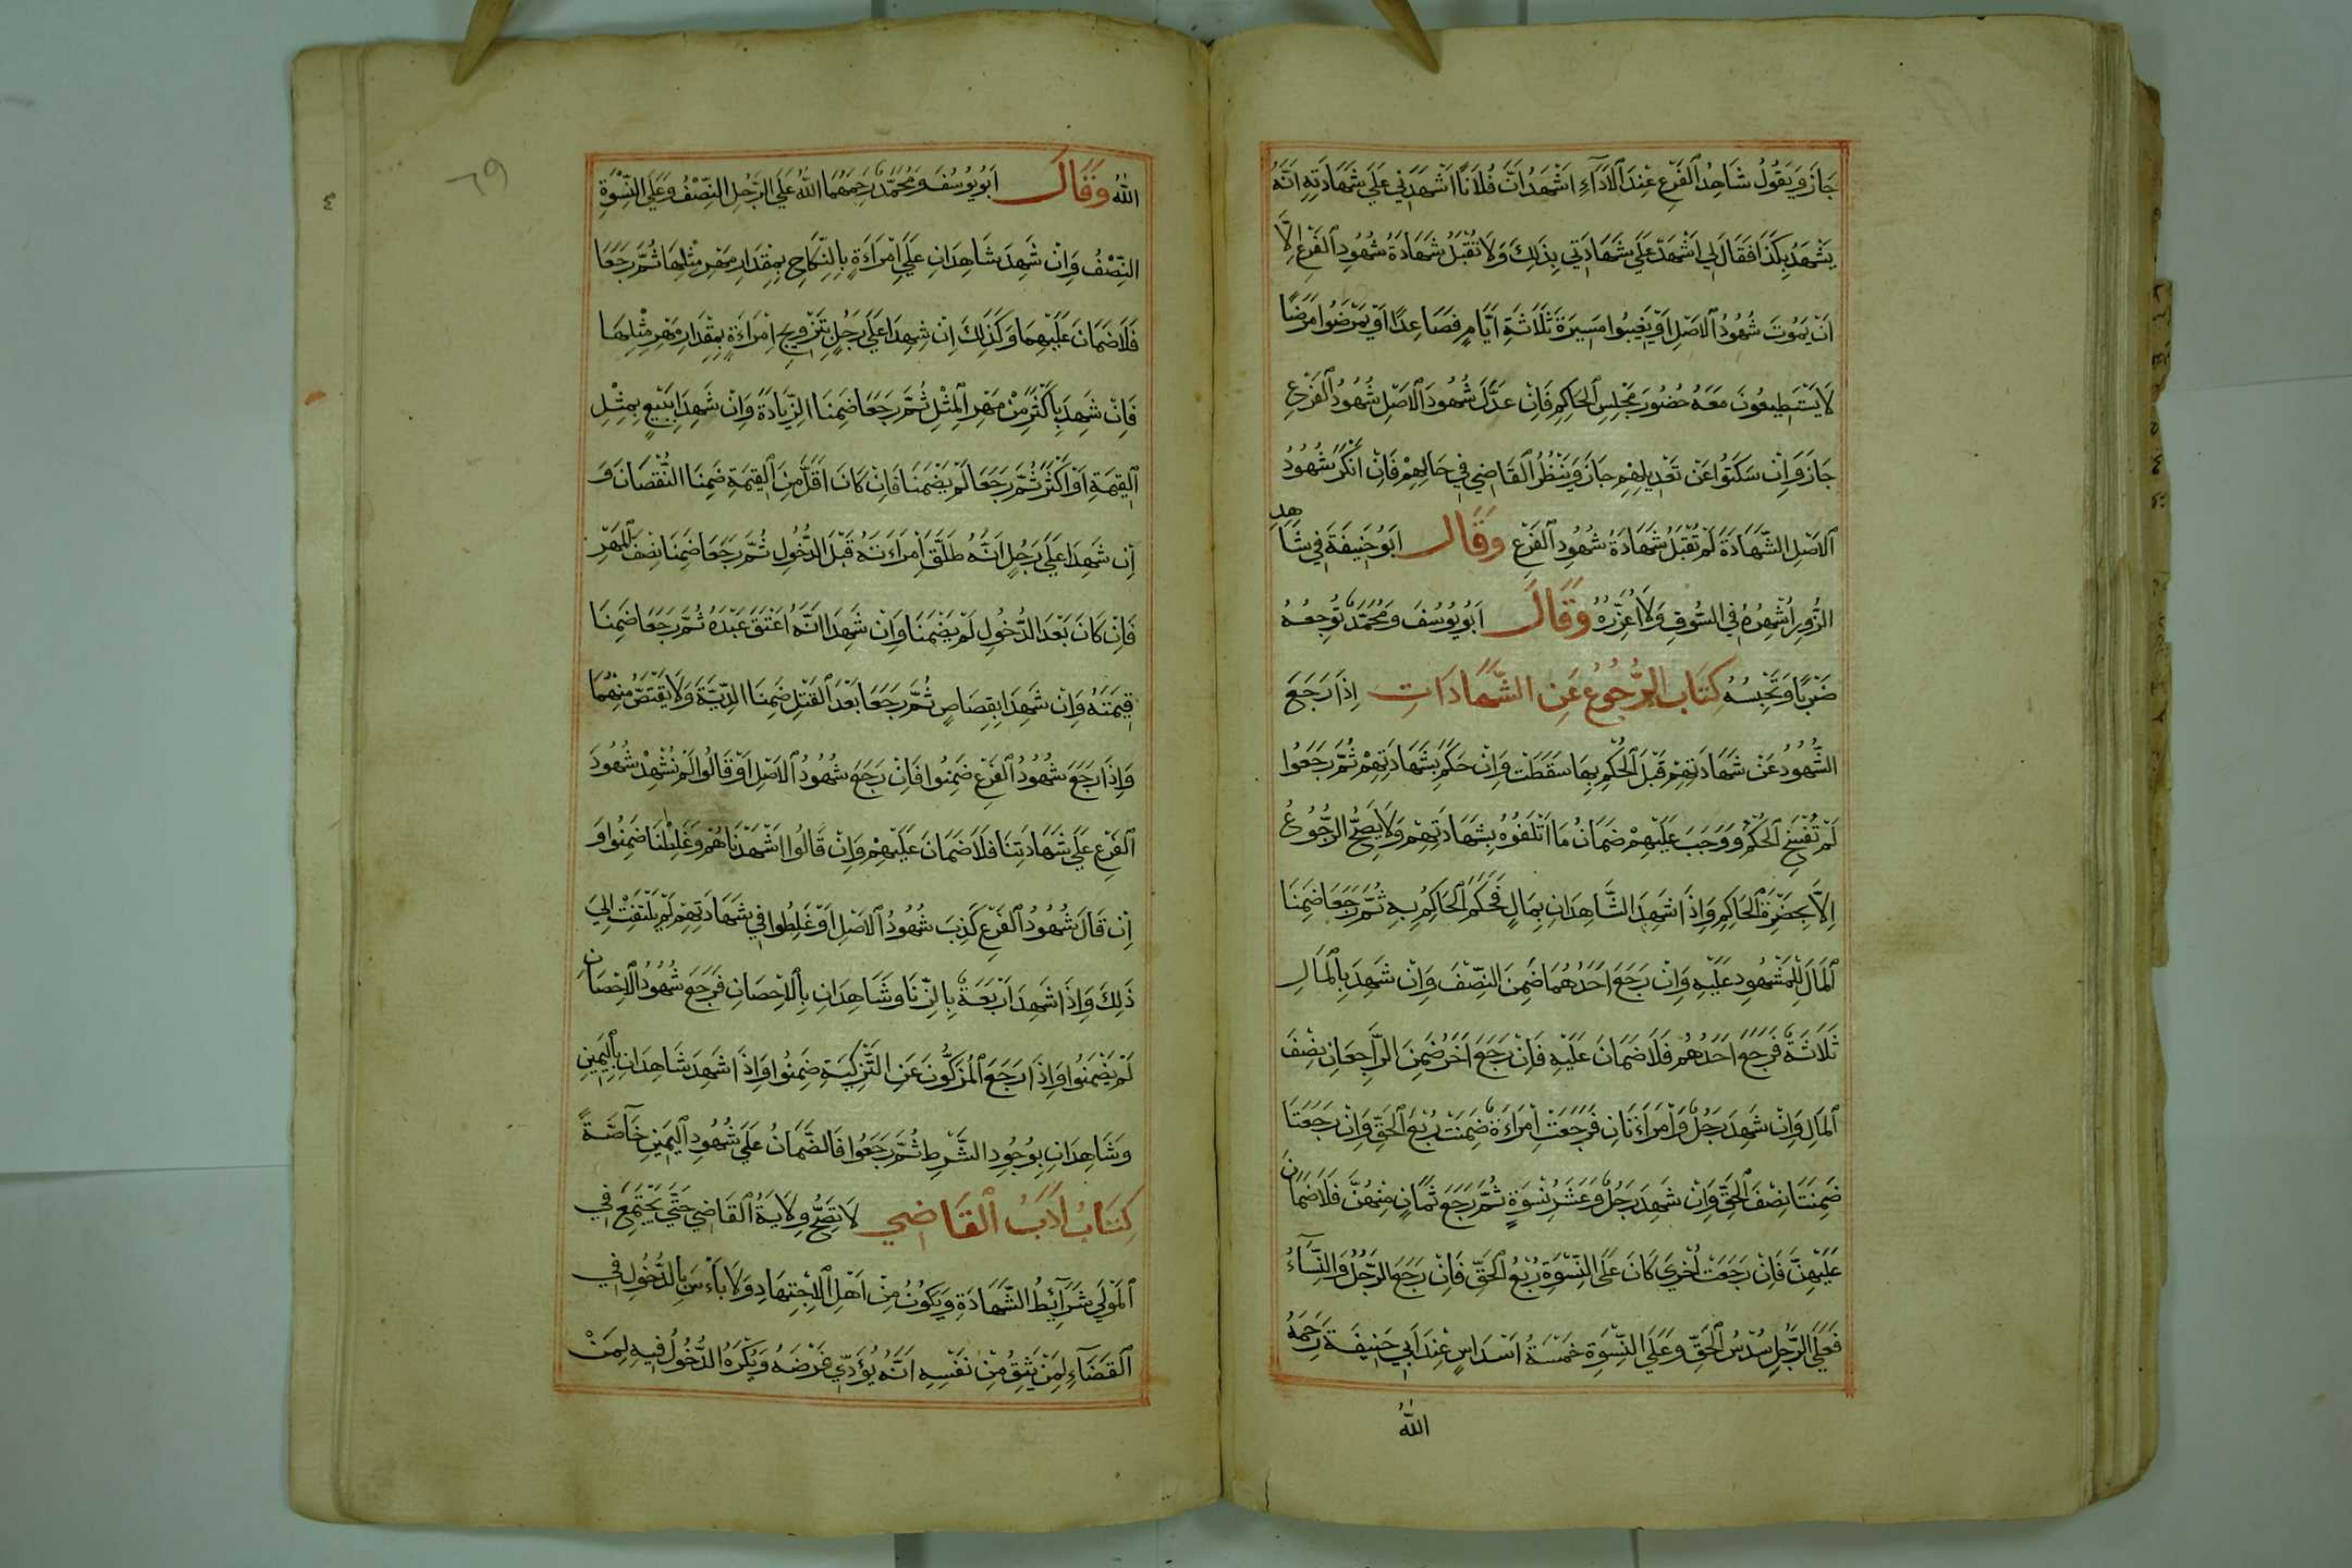 جَازَ وَيَقُولُ شَاهِدُ الْفَرْعِ عِنْدَ الْاَدَآءِ اَشْهَدُ اَنَّ فُلَانًا اَشْهَدَنِي عَلَى شَهَادَتِهِ اَنَّهُ
يَشْهَدُ بِكَذَا فَقَالَ لِي اَشْهَدْ عَلَى شَهَادَتِي بِذَلِكَ وَلَا تُقْبَلُ شَهَادَةُ شُهُودِ الْفَرْعِ اِلَّا
اَنْ يَمُوتَ شُهُودُ الْاَصْلِ اَوْ يَغِيبُوا مَسِيرَةَ ثَلَاثَةِ اَيَّامٍ فَصَاعِدًا اَوْ يَمْرَضُوا مَرَضًا
لَا يَسْتَطِيعُونَ مَعَهُ حُضُورَ مَجْلِسِ الْحَاكِمِ فَاِنْ عَدَّلَ شُهُودَ الْاَصْلِ شُهُودُ الْفَرْعِ
جَازَ وَاِنْ سَكَتُوا عَنْ تَعْدِيلِهِمْ جَازَ وَيَنْظُرُ الْقَاضِي فِي حَالِهِمْ فَاِنْ اَنْكَرَ شُهُودُ
الْاَصْلِ الشَّهَادَةَ لَمْ تُقْبَلْ شَهَادَةُ شُهُودِ الْفَرْعِ وَقَالَ اَبُو حَنِيفَةَ فِي شَاهِدِ
الزُّورِ اُشْهِرُهُ فِي السُّوقِ وَلَا اُعَزِّرُهُ وَقَالَ اَبُو يُوسُفَ وَمُحَمَّدٌ نُوجِعُهُ
ضَرْبًا وَنَحْبِسُهُ كِتَابُ الرُّجُوعِ عَنِ الشَّهَادَاتِ اِذَا رَجَعَ
الشُّهُودُ عَنْ شَهَادَتِهِمْ قَبْلَ الْحُكْمِ بِهَا سَقَطَتْ وَاِنْ حَكَمَ بِشَهَادَتِهِمْ ثُمَّ رَجَعُوا
لَمْ تُفْسَخِ الْحُكْمُ وَوَجَبَ عَلَيْهِمْ ضَمَانُ مَا اَتْلَفُوهُ بِشَهَادَتِهِمْ وَلَا يَصِحُّ الرُّجُوعُ
اِلَّا بِحَضْرَةِ الْحَاكِمِ وَاِذَا شَهِدَ الشَّاهِدَانِ بِمَالٍ فَحَكَمَ الْحَاكِمُ بِهِ ثُمَّ رَجَعَا ضَمِنَا
الْمَالَ لِلْمَشْهُودِ عَلَيْهِ وَاِنْ رَجَعَ اَحَدُهُمَا ضَمِنَ النِّصْفَ وَاِنْ شَهِدَ بِالْمَالِ
ثَلَاثَةٌ فَرَجَعَ اَحَدُهُمْ فَلَا ضَمَانَ عَلَيْهِ فَاِنْ رَجَعَ اٰخَرُ ضَمِنَ الرَّاجِعَانِ نِصْفَ
الْمَالِ وَاِنْ شَهِدَ رَجُلٌ وَامْرَاَتَانِ فَرَجَعَتْ اِمْرَاَةٌ ضَمِنَتْ رُبْعَ الْحَقِّ وَاِنْ رَجَعَتَا
ضَمِنَتَا نِصْفَ الْحَقِّ وَاِنْ شَهِدَ رَجُلٌ وَعَشَرُ نِسْوَةٍ ثُمَّ رَجَعَ ثَمَانٍ مِنْهُنَّ فَلَا ضَمَانَ
عَلَيْهِنَّ فَاِنْ رَجَعَتْ اُخْرَى كَانَ عَلَى النِّسْوَةِ رُبْعُ الْحَقِّ فَاِنْ رَجَعَ الرَّجُلُ وَالنِّسَآءُ
فَعَلَى الرَّجُلِ سُدْسُ الْحَقِّ وَعَلَى النِّسْوَةِ خَمْسَةُ اَسْدَاسٍ عِنْدَ اَبِي حَنِيفَةَ رَحِمَهُ
اللّٰهُ
٦٩
اللّٰهُ وَقَالَ اَبُو يُوسُفَ وَمُحَمَّدٌ رَحِمَهُمَا اللّٰهُ عَلَى الرَّجُلِ النِّصْفُ وَعَلَى النِّسْوَةِ
النِّصْفُ وَاِنْ شَهِدَ شَاهِدَانِ عَلَى اِمْرَاَةٍ بِالنِّكَاحِ بِمِقْدَارِ مَهْرِ مِثْلِهَا ثُمَّ رَجَعَا
فَلَا ضَمَانَ عَلَيْهِمَا وَكَذَلِكَ اِنْ شَهِدَا عَلَى رَجُلٍ بِتَزْوِيجِ اِمْرَاَةٍ بِمِقْدَارِ مَهْرِ مِثْلِهَا
فَاِنْ شَهِدَ بِاَكْثَرَ مِنْ مَهْرِ الْمِثْلِ ثُمَّ رَجَعَا ضَمِنَا الزِّيَادَةَ وَاِنْ شَهِدَا بِبَيْعٍ بِمِثْلِ
الْقِيمَةِ اَوْ اَكْثَرَ ثُمَّ رَجَعَا لَمْ يَضْمَنَا فَاِنْ كَانَ اَقَلَّ مِنَ الْقِيمَةِ ضَمِنَا النُّقْصَانَ وَ
اِنْ شَهِدَا عَلَى رَجُلٍ اَنَّهُ طَلَّقَ اِمْرَاَتَهُ قَبْلَ الدُّخُولِ ثُمَّ رَجَعَا ضَمِنَا نِصْفَ الْمَهْرِ
فَاِنْ كَانَ بَعْدَ الدُّخُولِ لَمْ يَضْمَنَا وَاِنْ شَهِدَا اَنَّهُ اَعْتَقَ عَبْدَهُ ثُمَّ رَجَعَا ضَمِنَا
قِيمَتَهُ وَاِنْ شَهِدَا بِقِصَاصٍ ثُمَّ رَجَعَا بَعْدَ الْقَتْلِ ضَمِنَا الدِّيَةَ وَلَا يُقْتَصُّ مِنْهُمَا
وَاِذَا رَجَعَ شُهُودُ الْفَرْعِ ضَمِنُوا فَاِنْ رَجَعَ شُهُودُ الْاَصْلِ اَوْ قَالُوا لَمْ نُشْهِدْ شُهُودَ
الْفَرْعِ عَلَى شَهَادَتِنَا فَلَا ضَمَانَ عَلَيْهِمْ وَاِنْ قَالُوا اَشْهَدْنَاهُمْ وَغَلِطْنَا ضَمِنُوا وَ
اِنْ قَالَ شُهُودُ الْفَرْعِ كَذِبَ شُهُودُ الْاَصْلِ اَوْ غَلِطُوا فِي شَهَادَتِهِمْ لَمْ يَلْتَفِتْ اِلَى
ذَلِكَ وَاِذَا شَهِدَ اَرْبَعَةٌ بِالزِّنَا وَشَاهِدَانِ بِالْاِحْصَانِ فَرَجَعَ شُهُودُ الْاِحْصَانِ
لَمْ يَضْمَنُوا وَاِذَا رَجَعَ الْمُزَكُّونَ عَنِ التَّزْكِيَةِ ضَمِنُوا وَاِذَا شَهِدَ شَاهِدَانِ بِالْيَمِينِ
وَشَاهِدَانِ بِوُجُودِ الشَّرْطِ ثُمَّ رَجَعُوا فَالضَّمَانُ عَلَى شُهُودِ الْيَمِينِ خَآصَّةً
كِتَابُ اَدَبِ الْقَاضِي لَا تَصِحُّ وِلَايَةُ الْقَاضِي حَتَّى يَجْتَمِعَ فِي
الْمَوْلَى شَرَآئِطُ الشَّهَادَةِ وَيَكُونُ مِنْ اَهْلِ الْاِجْتِهَادِ وَلَا بَاْسَ بِالدُّخُولِ فِي
الْقَضَآءِ لِمَنْ يَثِقُ مِنْ نَفْسِهِ اَنَّهُ يُؤَدِّي فَرْضَهُ وَيُكْرَهُ الدُّخُولُ فِيهِ لِمَنْ